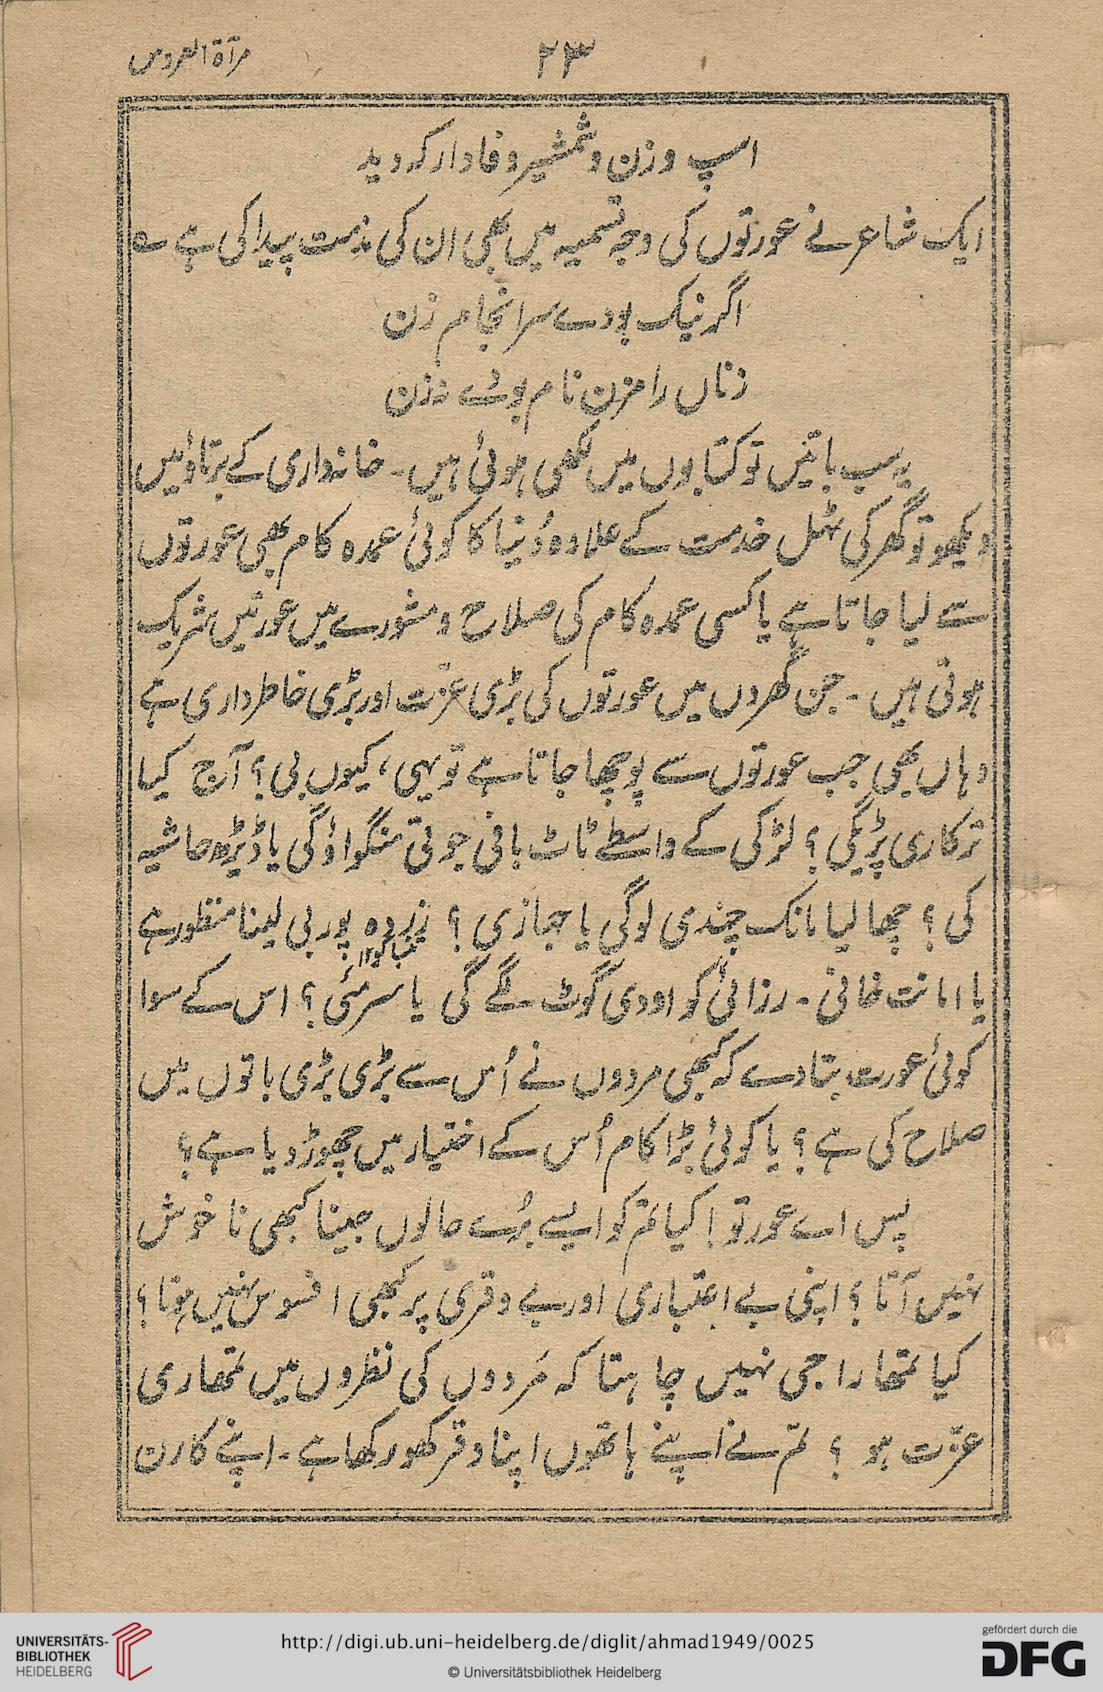 مرآۃ العروس
۲۳
اسپ و زن و شمشیر وفادار کہ دید
ایک شاعر نے عورتوں کی وجہ تسمیہ میں بھی ان کی مذمت پیدا کی ہے ؎
اگر نیک بودے سرانجام زن
زناں را مزن نام بودے نہ زن
یہ سب باتیں تو کتابوں میں لکھی ہوئی ہیں۔ خانہ داری کے برتاؤ میں
دیکھو تو گھر کی ٹہل خدمت کے علاوہ دُنیا کا کوئی عمدہ کام بھی عورتوں
سے لیا جاتا ہے یا کسی عمدہ کام کی صلاح و مشورے میں عورتیں شریک
ہوتی ہیں۔ جن گھروں میں عورتوں کی بڑی عزّت اور بڑی خاطرداری ہے
وہاں بھی جب عورتوں سے پوچھا جاتا ہے تو یہی، کیوں بی؟ آج کیا
ترکاری پڑیگی؟ لڑکی کے واسطے ٹاٹ بافی جوتی منگواؤ گی یا ڈیڑھ حاشیہ
کی؟ چھالیا مانک چندی لوگی یا جہازی؟ زردہ پوربی لینا منظور ہے
تمباکو۱۲
یا امانت خانی۔ رزائی کو اودی گوٹ لگے گی یا سرمئی؟ اس کے سوا
کوئی عورت بتادے کہ کبھی مردوں نے اُس سے بڑی بڑی باتوں میں
صلاح کی ہے؟ یا کوئی بڑا کام اُس کے اختیار میں چھوڑ دیا ہے؟
پس اے عورتو! کیا تم کو ایسے بُرے حالوں جینا کبھی ناخوش
نہیں آتا؟ اپنی بے اعتباری اور بے وقری پر کبھی افسوس نہیں ہوتا؟
کیا تمھارا جی نہیں چاہتا کہ مَردوں کی نظروں میں تمھاری
عزّت ہو؟ تم نے اپنے ہاتھوں اپنا وقر کھو رکھا ہے۔ اپنے کارن
UNIVERSITÄTS-
BIBLIOTHEK
HEIDELBERG
http://digi.ub.uni-heidelberg.de/diglit/ahmad1949/0025
© Universitätsbibliothek Heidelberg
gefördert durch die
DFG